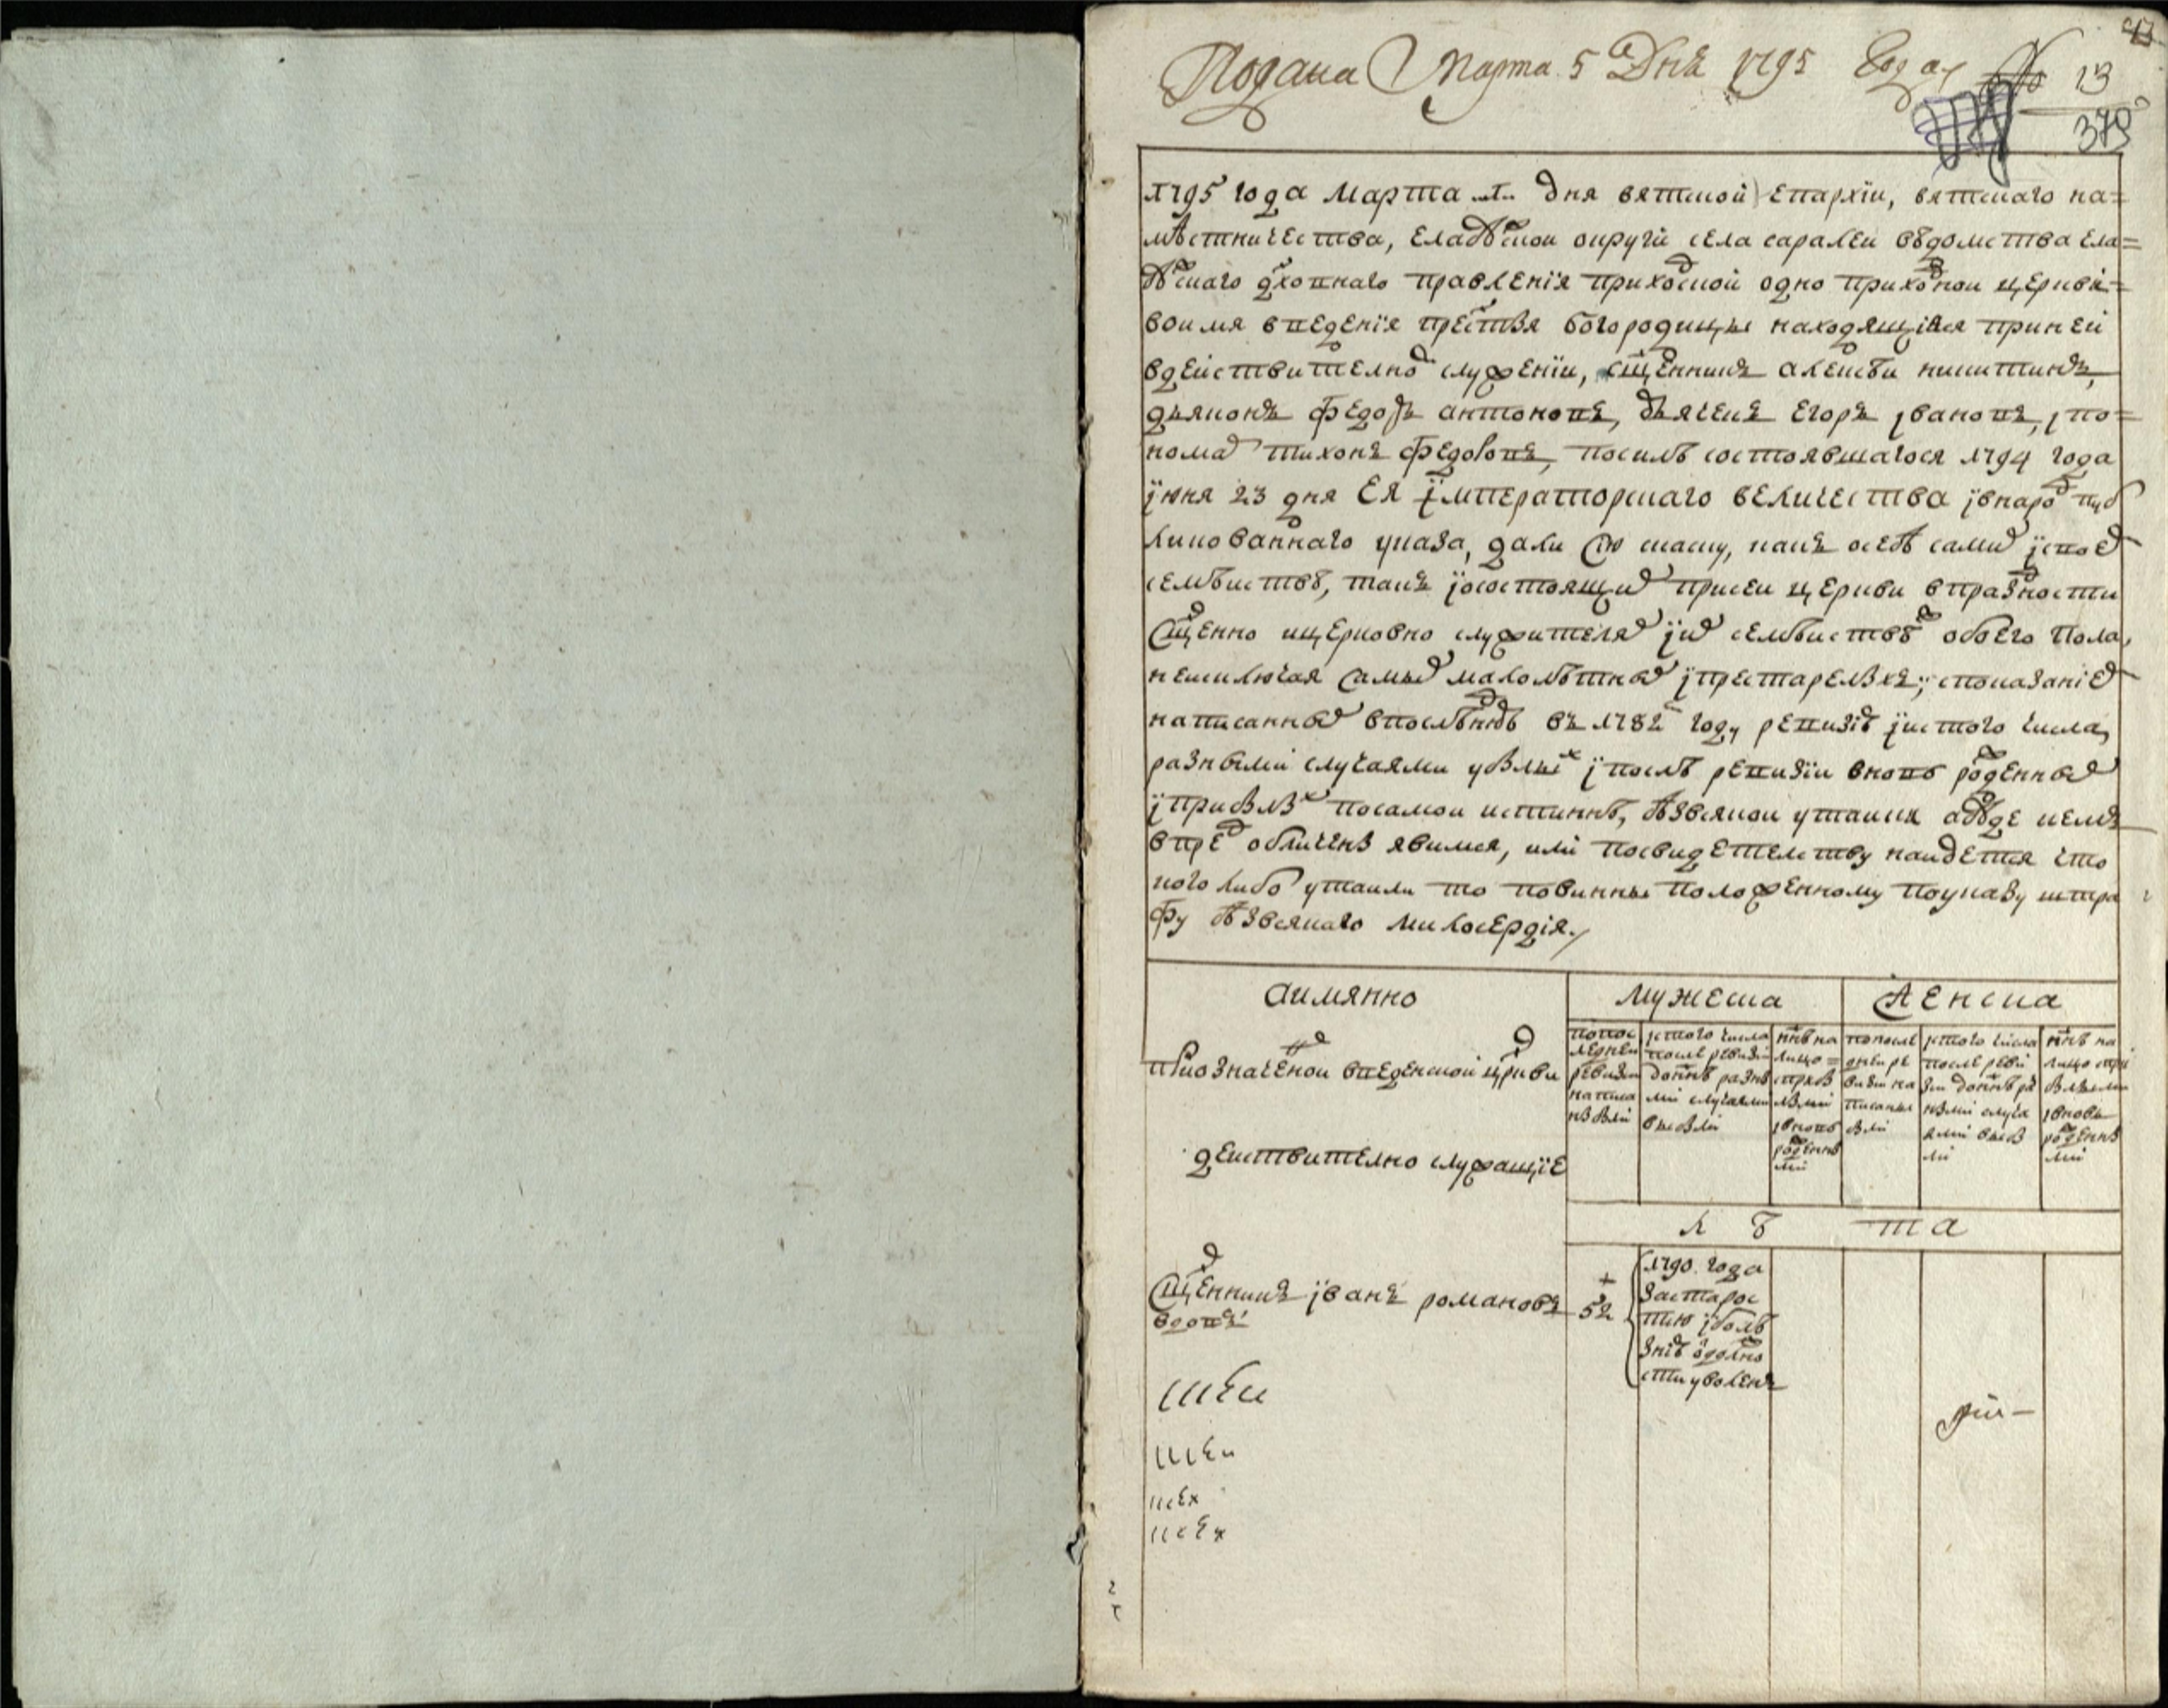 Подана Марта 5 Дня 1795 Года № 13
375
1795 года марта дня вятской епархїи, вятскаго на=
мѣстничества, елабꙋской округи села саралеи вѣдомства ела=
бꙋскаго дховнаго правленїя приходской одно приходнои церкви
во имя введенїя престыя богородицы находящїися при ней
в действителном служенїи, священникъ алеѯѣи никитинъ,
дьяконъ федоръ антоновъ, дьячекъ егоръ iвановъ, i по=
номар тихонъ федоровъ, по силѣ состоявшагося 1794 года
їюня 23 дня ея їмператорскаго величества i в народ пуб
ликованнаго указа, дали сїю скаску, какъ о себѣ самих i своех
семѣиствѣ, такъ i о состоящих при сеи церкви в праздности
священно и церковно служителях i их семѣиствѣ обоего пола,
не исключая самых малолѣтных i престарелыхъ; с показанием
написанных в последнюю въ 1782 году ревизїю i ис того числа
разными случаями убылых i после ревизїи вновь рожденных
i прибылых по самои истиннѣ, без всякои утаики а буде кемъ
впредь обличены явимся, или по свидетелству наидется что
кого либо утаили то повинны положенному по указу штра
фу без всякаго милосердїя.
а имянно
мужеска
женска
При означеной введенской церкви
действително служащїе
по пос
леднеи
ревизи
написа
ны были
ис того числа
после ревизи
до ннѣ разны
ми случаями
выбыли
ннѣ на
лицо
с прибы
лыми
i вновь
рожденны
ми
по после
днеи ре
визи на
писаны
были
ис того числа
после реви
зи до ннѣ ра
зными случа
ями выбы
ли
ннѣ на
лицо с при
былыми
i вновь
рожденны
ми
л ѣ та
Священникъ їванъ романовъ
вдовъ
52
1790 года
за старос
тию i болѣ
знїю от должно
сти уволенъ